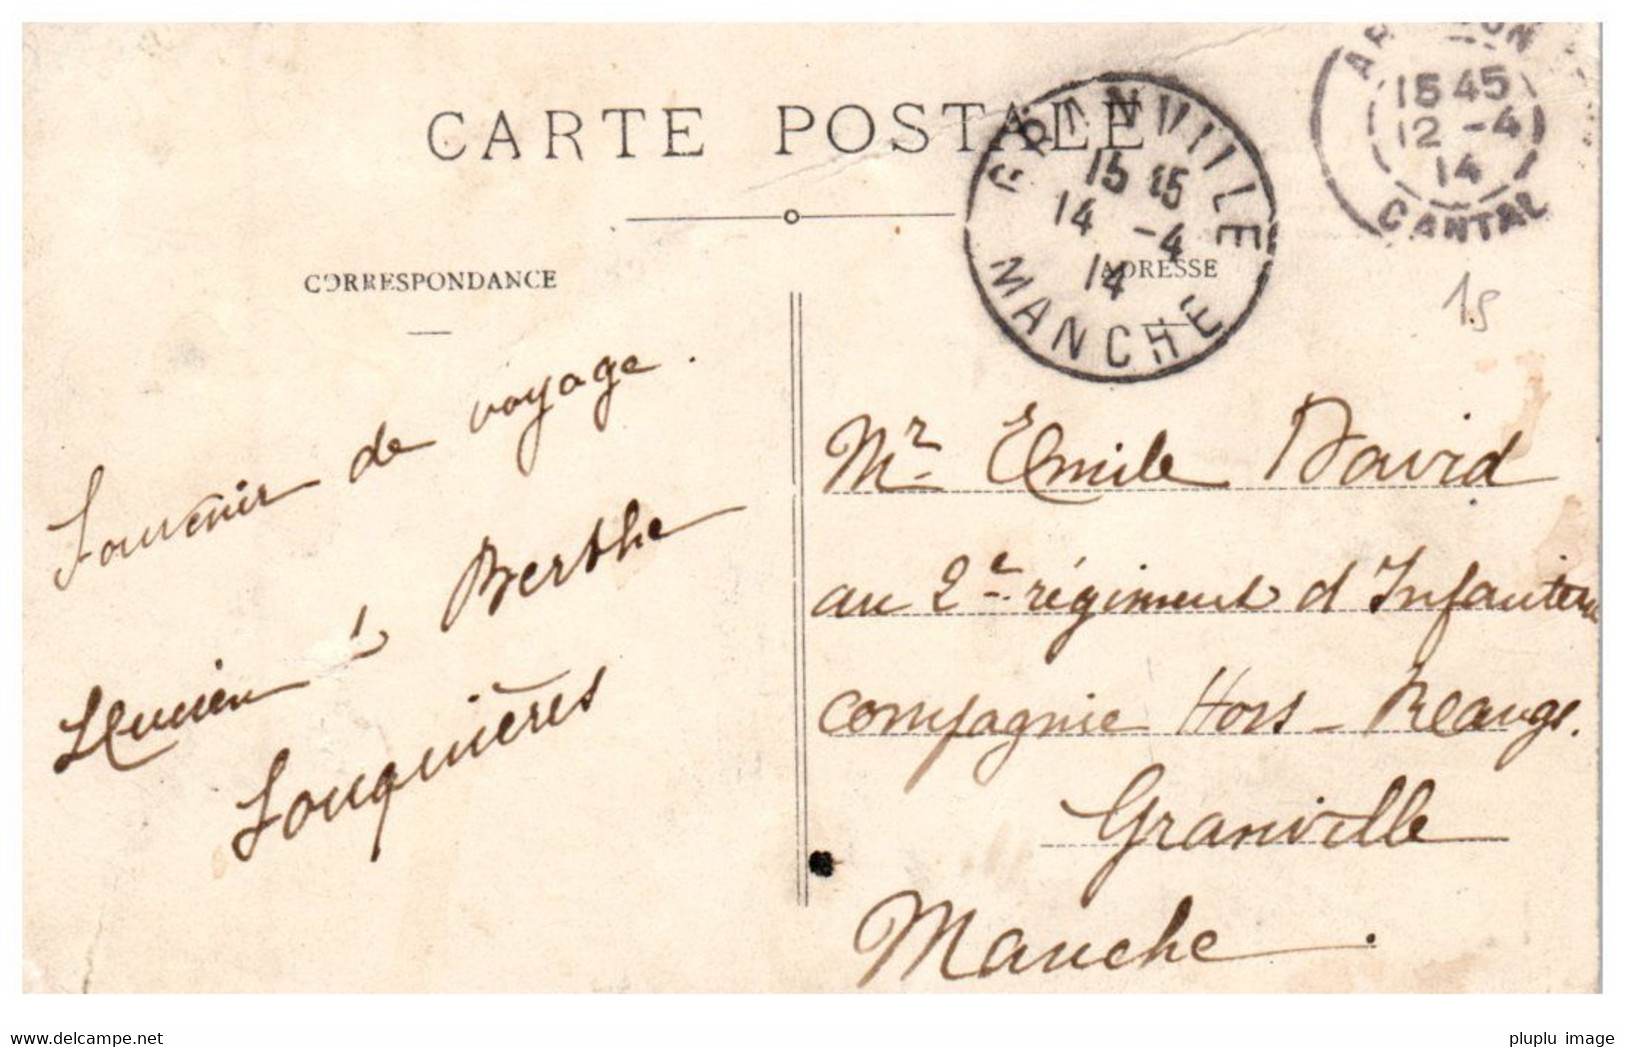 CARTE POSTALE
CORRESPONDANCE
ADRESSE
GRANVILLE
15 15
14 -4
14
MANCHE
15 45
12 -4
14
CANTAL
15
Souvenir de voyage.
Lucien & Berthe
Fouquières
Mr Emile David
au 2e régiment d'Infanterie
compagnie Hors-Rangs.
Granville
Manche.
www.delcampe.net
pluplu image